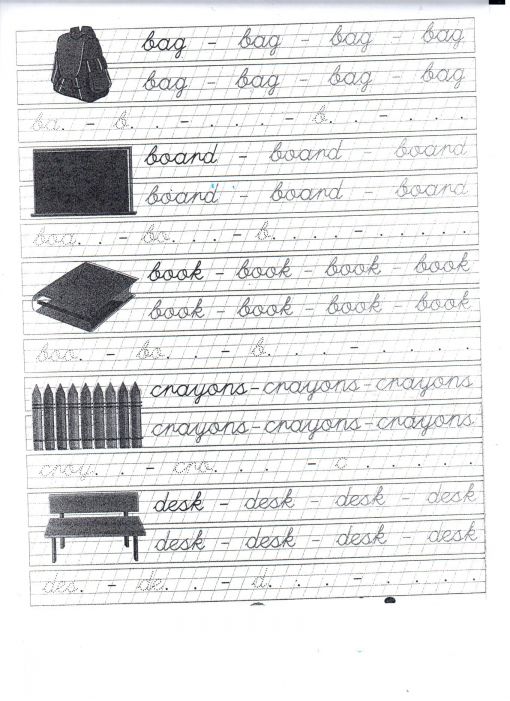 bag - bag - bag - bag
bag - bag - bag - bag
ba. - b. . - . . . - b. . - . . .
board - board - board
board - board - board
boa. . - bo. . . - b. . . . - . . . . .
book - book - book - book
book - book - book - book
boo. - bo. . - b. . . - . . . .
crayons - crayons - crayons
crayons - crayons - crayons
cray. . . - cra. . . . - c . . . . . .
desk - desk - desk - desk
desk - desk - desk - desk
des. - de. . - d. . . - . . . .